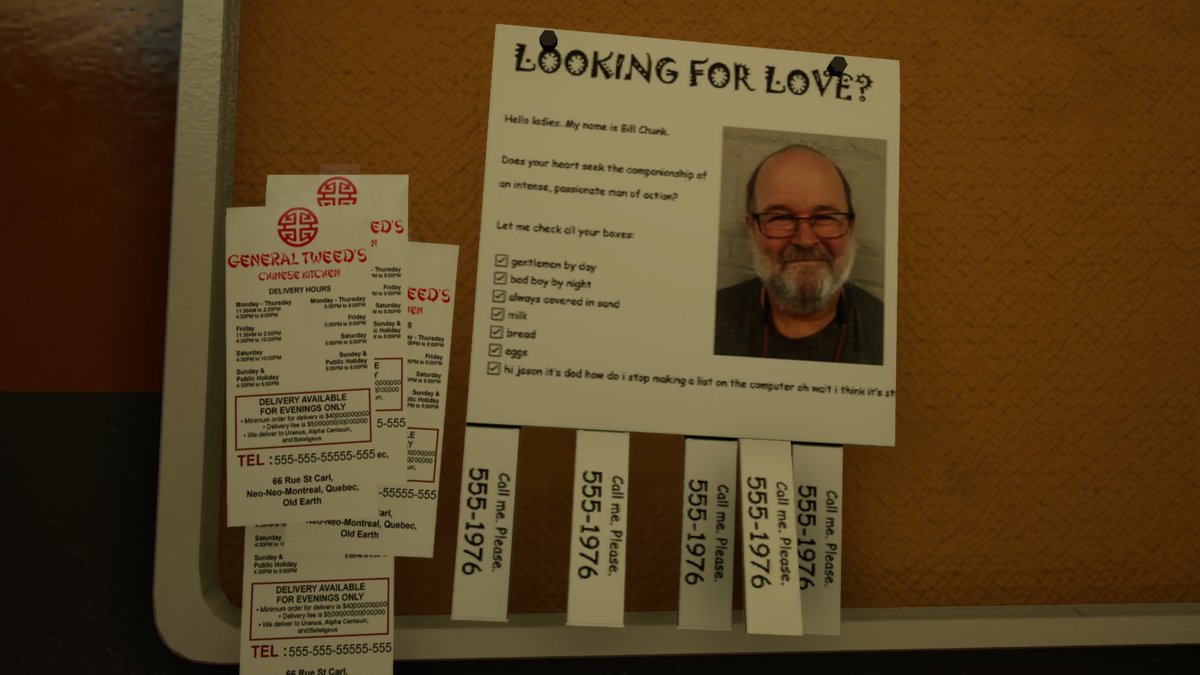 LOOKING FOR LOVE?
Hello ladies. My name is Bill Chunk.
Does your heart seek the companionship of
an intense, passionate man of action?
Let me check all your boxes:
gentleman by day
bad boy by night
always covered in sand
milk
bread
eggs
hi jason it's dad how do i stop making a list on the computer oh wait i think it's st
Call me. Please.
555-1976
Call me. Please.
555-1976
Call me. Please.
555-1976
Call me. Please.
555-1976
Call me. Please.
555-1976
GENERAL TWEED'S
CHINESE KITCHEN
DELIVERY HOURS
Monday - Thursday
11:30AM to 2:30PM
4:30PM to 9:00PM
Friday
11:30AM to 2:30PM
4:30PM to 10:00PM
Saturday
4:30PM to 10:00PM
Sunday &
Public Holiday
4:30PM to 9:00PM
Monday - Thursday
5:00PM to 8:00PM
Friday
5:00PM to 9:00PM
Saturday
5:00PM to 9:00PM
Sunday &
Public Holiday
5:00PM to 8:00PM
DELIVERY AVAILABLE
FOR EVENINGS ONLY
• Minimum order for delivery is $40000000000
• Delivery fee is $5000000000000
• We deliver to Uranus, Alpha Centauri,
and Betelgeus
TEL : 555-555-55555-555
66 Rue St Carl,
Neo-Neo-Montreal, Quebec,
Old Earth
EED'S
N
Thursday
Friday
Saturday
Sunday &
Public Holiday
-555
ec,
EED'S
EN
- Thursday
Friday
Saturday
Sunday &
Public Holiday
-55555-555
Carl,
Neo-Neo-Montreal, Quebec,
Old Earth
Saturday
Sunday &
Public Holiday
4:30PM to 9:00PM
DELIVERY AVAILABLE
FOR EVENINGS ONLY
• Minimum order for delivery is $40000000000
• Delivery fee is $5000000000000
• We deliver to Uranus, Alpha Centauri,
and Betelgeus
TEL : 555-555-55555-555
66 Rue St Carl,